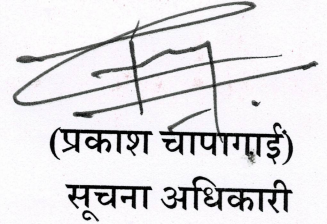 (प्रकाश चापागाईं)
सूचना अधिकारी